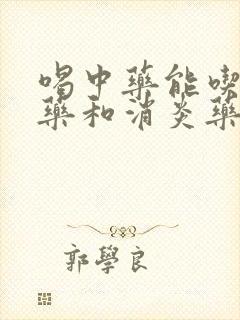 喝中藥能喫
藥和消炎藥
郭學良